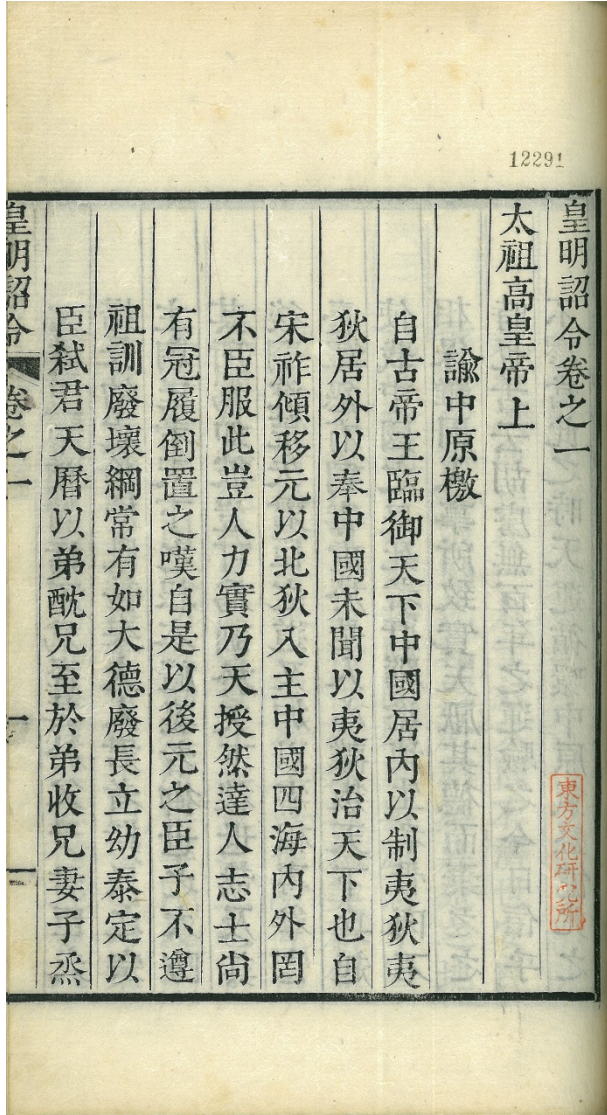 12291
皇明詔令卷之一
太祖高皇帝上
諭中原檄
自古帝王臨御天下中國居內以制夷狄夷
狄居外以奉中國未聞以夷狄治天下也自
宋祚傾移元以北狄入主中國四海內外罔
不臣服此豈人力實乃天授然達人志士尙
有冠履倒置之嘆自是以後元之臣子不遵
祖訓廢壞綱常有如大德廢長立幼泰定以
臣弑君天曆以弟酖兄至於弟收兄妻子烝
皇明詔令 卷之一 一
東方文化研究所